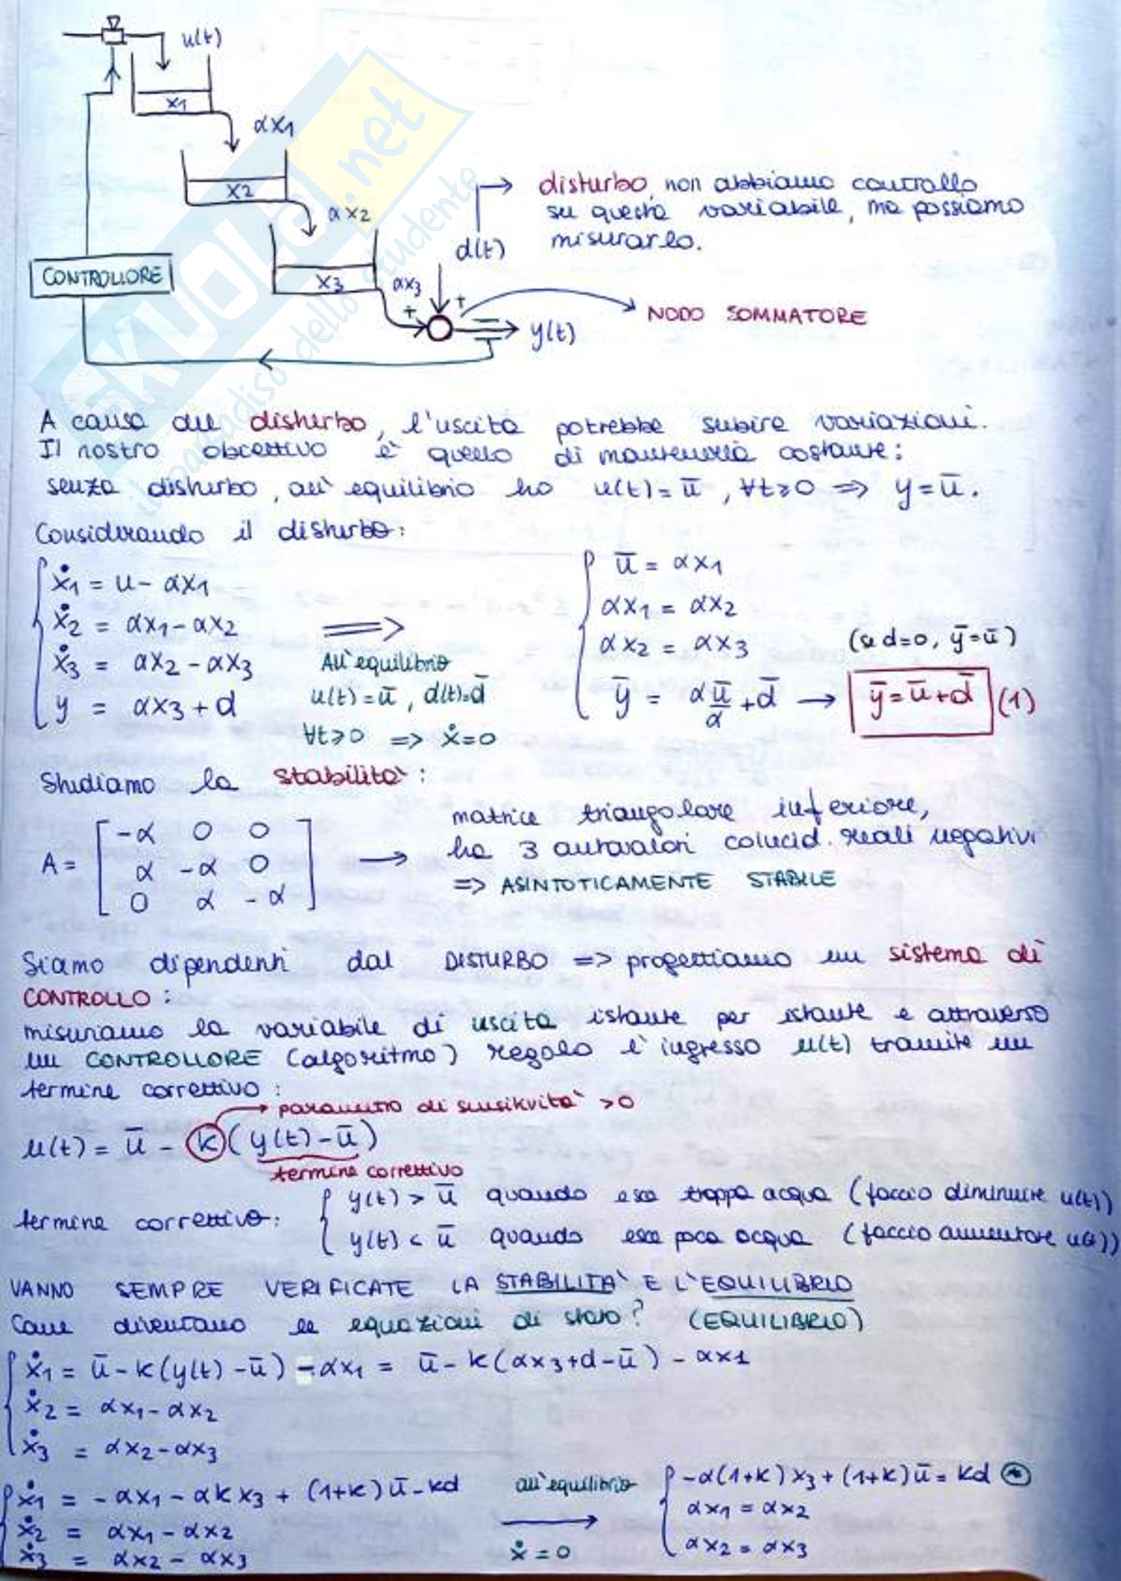 u(t)
x1
αx1
x2
αx2
x3
αx3
CONTROLLORE
d(t)
+
+
y(t)
disturbo, non abbiamo controllo
su questa variabile, ma possiamo
misurarlo.
NODO SOMMATORE
SKUOLA.net
il paradiso dello studente
A causa del disturbo, l'uscita potrebbe subire variazioni.
Il nostro obiettivo è quello di mantenerla costante:
senza disturbo, all'equilibrio ho u(t)=ū, ∀t≥0 => y=ū.
Considerando il disturbo:
ẋ1 = u - αx1
ẋ2 = αx1 - αx2
ẋ3 = αx2 - αx3
y = αx3 + d
=>
All'equilibrio
u(t)=ū, d(t)=d̄
∀t≥0 => ẋ=0
ū = αx1
αx1 = αx2
αx2 = αx3
(se d=0, ȳ=ū)
ȳ = α ū/α + d̄ → ȳ=ū+d̄ (1)
Studiamo la stabilità:
A = [ -α 0 0
α -α 0
0 α -α ]
→ matrice triangolare inferiore,
ha 3 autovalori coincid. reali negativi
=> ASINTOTICAMENTE STABILE
Siamo dipendenti dal DISTURBO => progettiamo un sistema di
CONTROLLO:
misuriamo la variabile di uscita istante per istante e attraverso
un CONTROLLORE (algoritmo) regolo l'ingresso u(t) tramite un
termine correttivo:
parametro di sensitività >0
u(t) = ū - k (y(t) - ū)
termine correttivo
termine correttivo: { y(t) > ū quando esce troppa acqua (faccio diminuire u(t))
y(t) < ū quando esce poca acqua (faccio aumentare u(t))
VANNO SEMPRE VERIFICATE LA STABILITA' E L'EQUILIBRIO
Come diventano le equazioni di stato? (EQUILIBRIO)
ẋ1 = ū - k(y(t) - ū) - αx1 = ū - k(αx3+d-ū) - αx1
ẋ2 = αx1 - αx2
ẋ3 = αx2 - αx3
ẋ1 = -αx1 - αkx3 + (1+k)ū - kd
ẋ2 = αx1 - αx2
ẋ3 = αx2 - αx3
all'equilibrio
→
ẋ = 0
-α(1+k)x3 + (1+k)ū = kd *
αx1 = αx2
αx2 = αx3